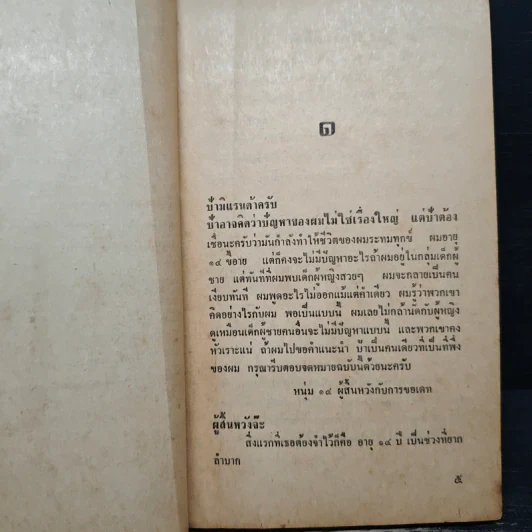 ๑
ป้ามิแรนด้าครับ
ป้าอาจคิดว่าปัญหาของผมไม่ใช่เรื่องใหญ่ แต่ป้าต้อง
เชื่อนะครับว่ามันกำลังทำให้ชีวิตของผมระทมทุกข์ ผมอายุ
๑๔ ขี้อาย แต่ก็คงจะไม่มีปัญหาอะไรถ้าผมอยู่ในกลุ่มเด็กผู้
ชาย แต่ทันทีที่ผมพบเด็กผู้หญิงสวยๆ ผมจะกลายเป็นคน
เงียบทันที ผมพูดอะไรไม่ออกแม้แต่คำเดียว ผมรู้ว่าพวกเขา
คิดอย่างไรกับผม พอเป็นแบบนี้ ผมเลยไม่กล้านัดกับผู้หญิง
ดูเหมือนเด็กผู้ชายคนอื่นจะไม่มีปัญหาแบบนี้ และพวกเขาคง
หัวเราะแน่ ถ้าผมไปขอคำแนะนำ ป้าเป็นคนเดียวที่เป็นที่พึ่ง
ของผม กรุณารีบตอบจดหมายฉบับนี้ด้วยนะครับ
หนุ่ม ๑๔ ผู้สิ้นหวังกับการขอเดท
ผู้สิ้นหวังจ๊ะ
สิ่งแรกที่เธอต้องจำไว้ก็คือ อายุ ๑๔ ปี เป็นช่วงที่ยาก
ลำบาก
๕